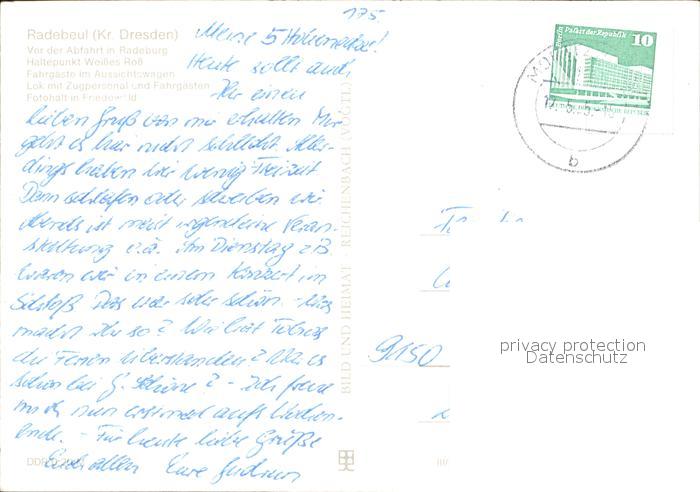 175.
Radebeul (Kr. Dresden)
Vor der Abfahrt in Radeburg
Haltepunkt Weißes Roß
Fahrgäste im Aussichtswagen
Lok mit Zugpersonal und Fahrgästen
Fotohalt in
Meine 5
Heute sollt auch
Ihr einen
lieben Gruß von mir erhalten Mir
geht es hier nicht schlecht. Aller-
dings haben wir wenig Freizeit
Denn schlafen oder schreiben wir
Abends ist meist irgendeine Veran-
staltung o.ä. Am Dienstag z.B.
waren wir in einem Konzert im
Schloß Das war sehr schön. - Was
macht Ihr so? Wie hat Tobias
die Ferien überstanden? War es
schön bei G. ? - Ich freue
mich nun erstmal aufs Wochen-
ende. - Für heute liebe Grüße
Euch allen Eure Gudrun
BILD UND HEIMAT · REICHENBACH (VOGTL)
Berlin, Palast der Republik
10
b
9150
privacy protection
Datenschutz